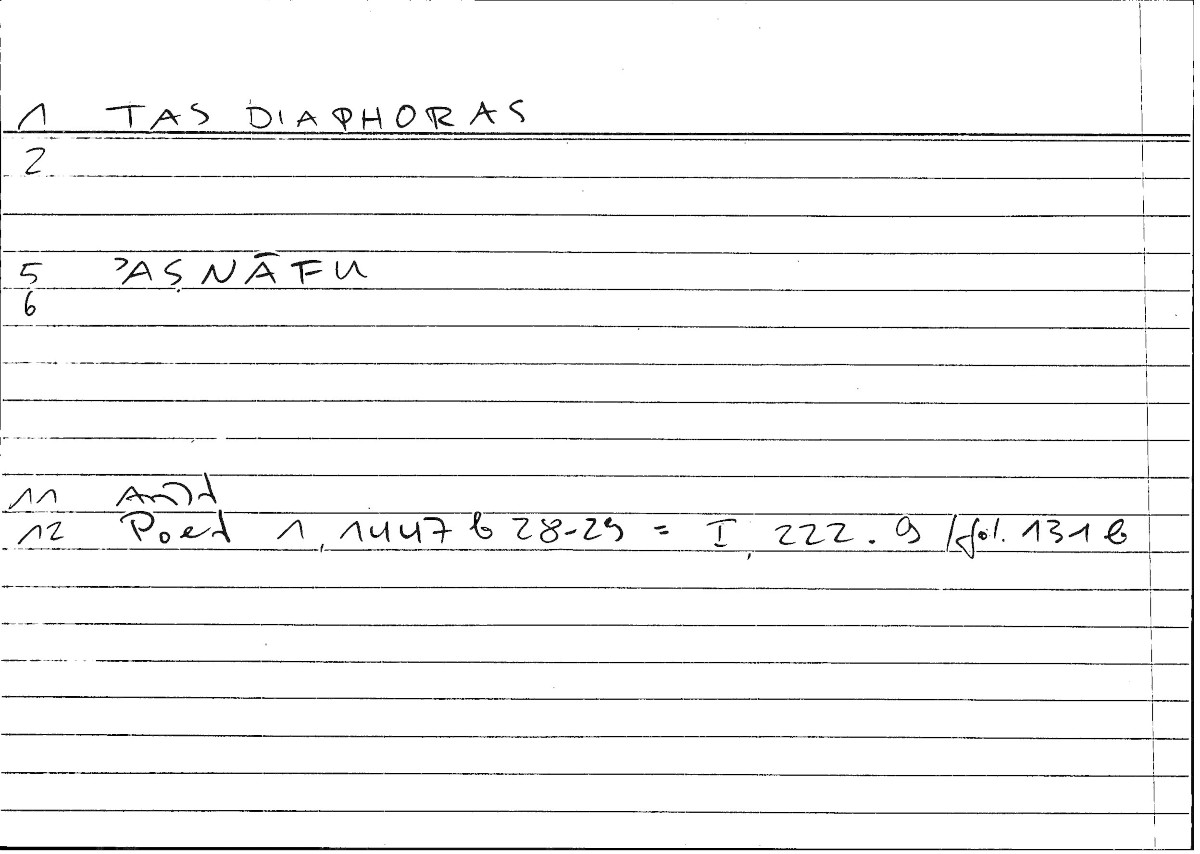 1 TAS DIAPHORAS
2
5 ʾAṢNĀFU
6
11
12 Poet 1, 1447 b 28-29 = I, 222. 9 /fol. 131 b